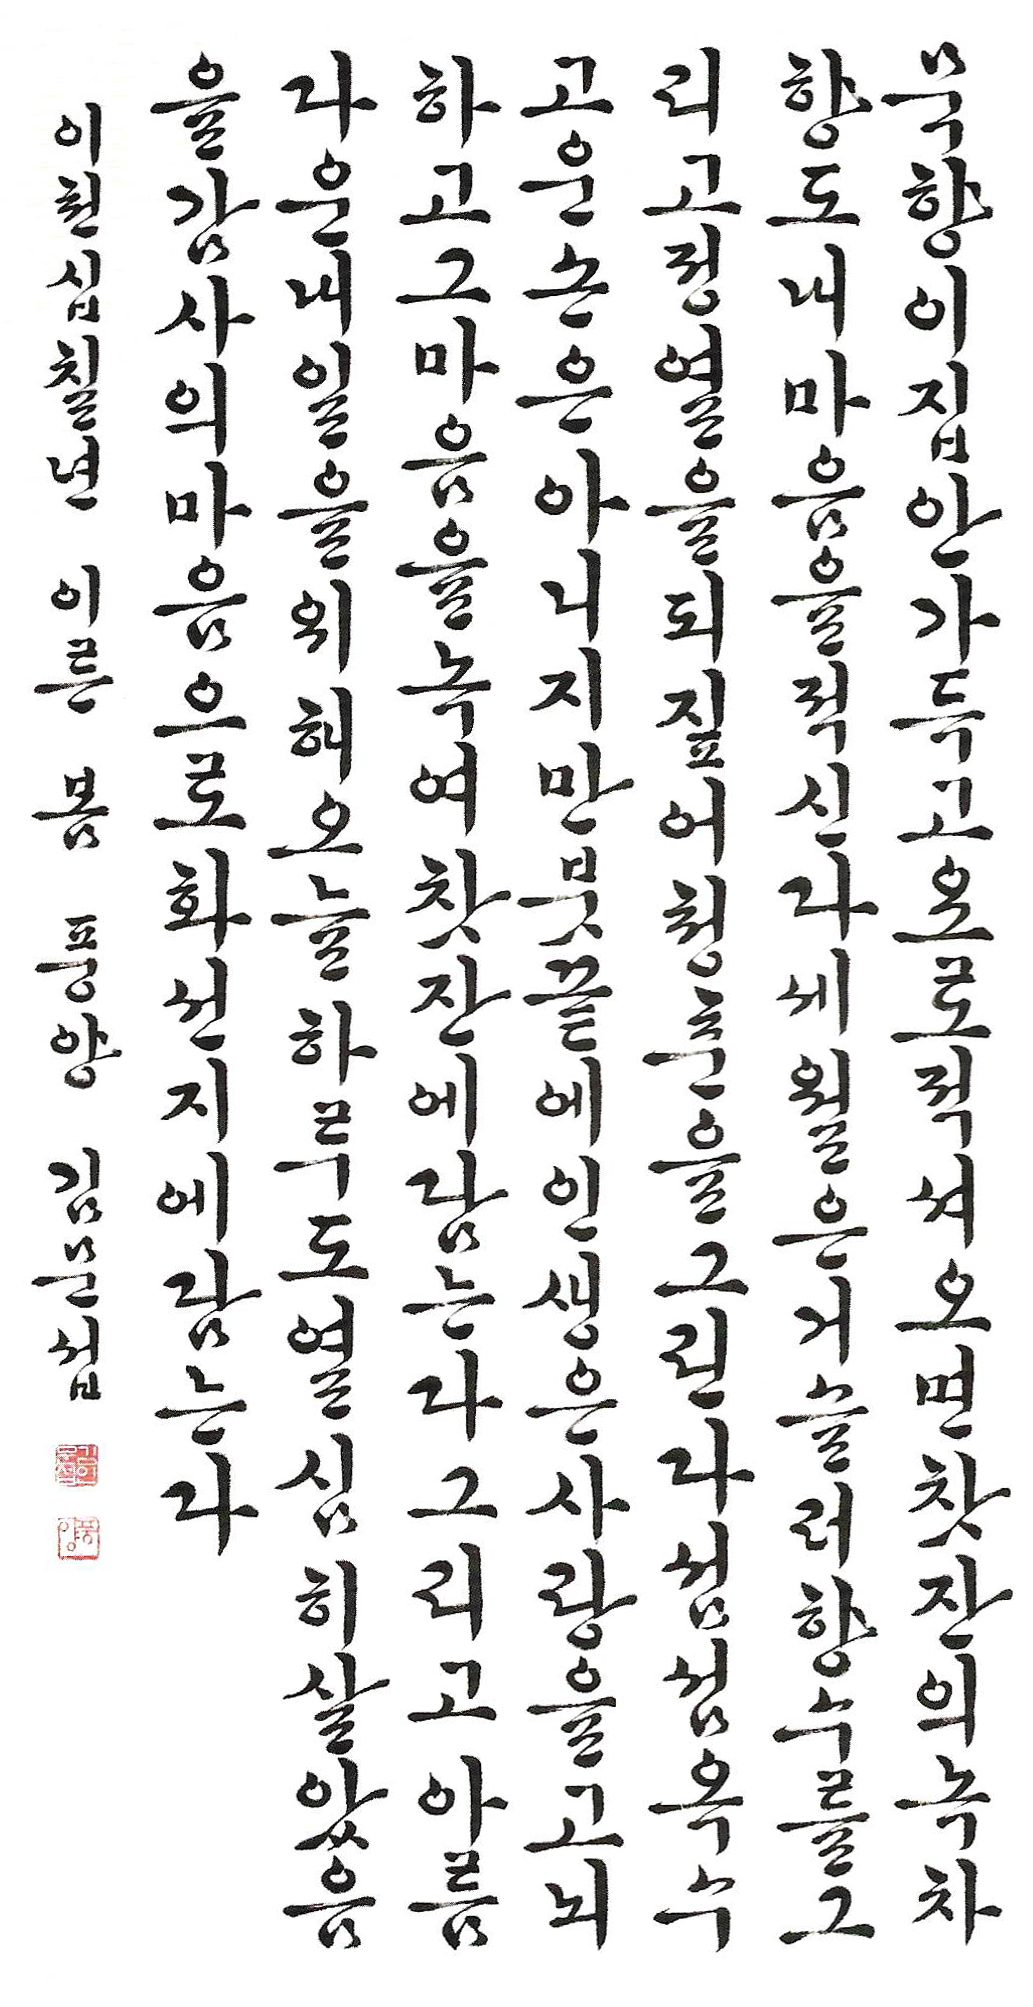 묵향이집안가득고요로적셔오면찻잔의녹차
향도내마음을적신다세월은거슬러향수를그
리고정열을되짚어청춘을그린다섬섬옥수
고운손은아니지만붓끝에인생은사랑을고뇌
하고그마음을녹여찻잔에담는다그리고아름
다운내일을위해오늘하루도열심히살았음
을감사의마음으로화선지에담는다
이천십칠년 이른 봄 풍양 김문섭
풍양